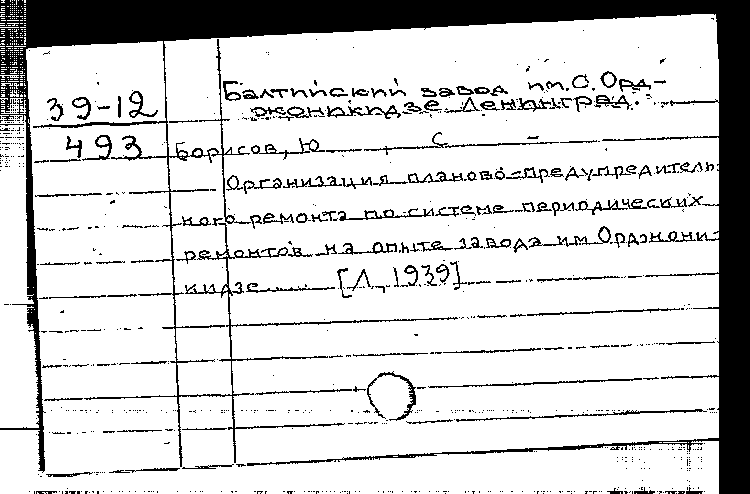 Балтийский завод им. С. Орд-
жоникидзе Ленинград.
39-12
493
Борисов, Ю , С -
Организация планово-предупредитель-
ного ремонта по системе периодических
ремонтов на опыте завода им Орджони-
кидзе...... [Л, 1939]